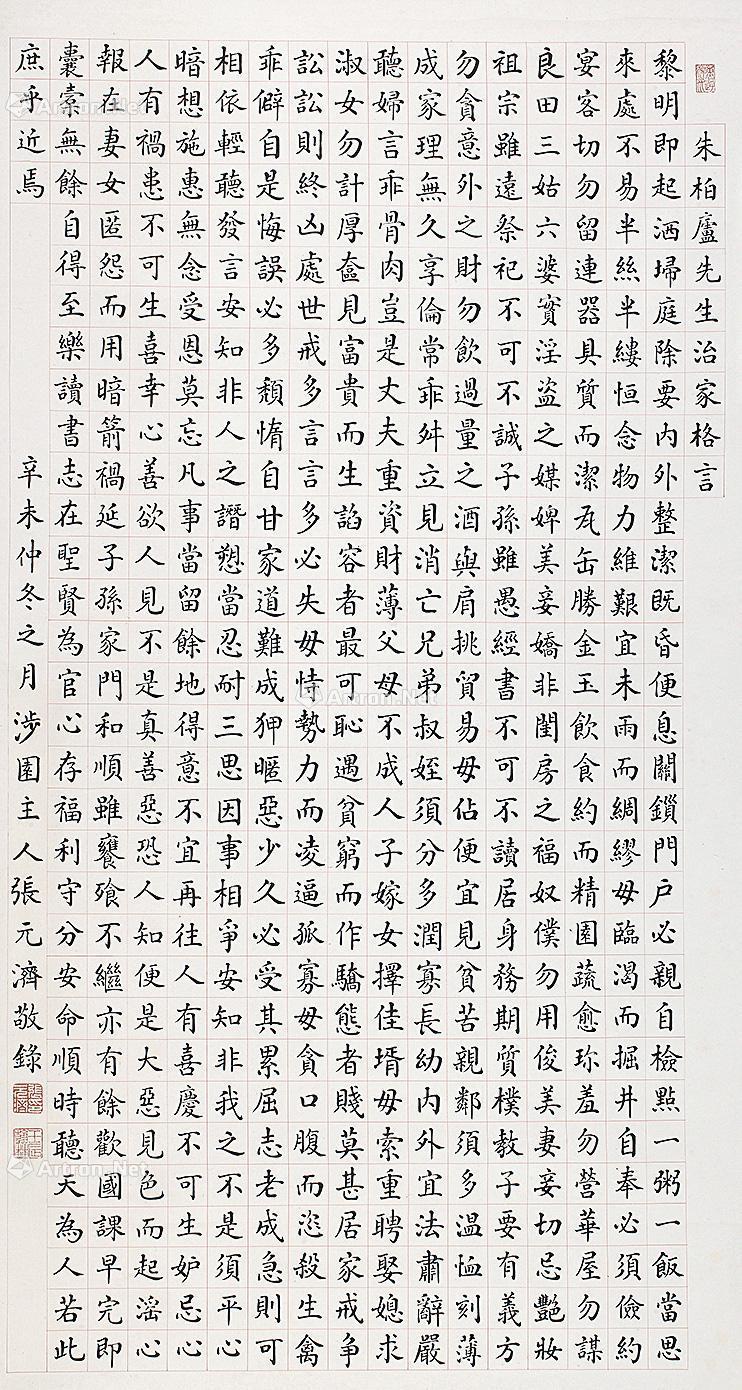 朱柏廬先生治家格言
黎明即起洒埽庭除要內外整潔既昏便息關鎖門戶必親自檢點一粥一飯當思
來處不易半絲半縷恒念物力維艱宜未雨而綢繆毋臨渴而掘井自奉必須儉約
宴客切勿留連器具質而潔瓦缶勝金玉飲食約而精園蔬愈珍羞勿營華屋勿謀
良田三姑六婆實淫盜之媒婢美妾嬌非閨房之福奴僕勿用俊美妻妾切忌艷妝
祖宗雖遠祭祀不可不誠子孫雖愚經書不可不讀居身務期質樸教子要有義方
勿貪意外之財勿飲過量之酒與肩挑貿易毋佔便宜見貧苦親鄰須多溫恤刻薄
成家理無久享倫常乖舛立見消亡兄弟叔姪須分多潤寡長幼內外宜法肅辭嚴
聽婦言乖骨肉豈是丈夫重資財薄父母不成人子嫁女擇佳壻毋索重聘娶媳求
淑女勿計厚奩見富貴而生諂容者最可恥遇貧窮而作驕態者賤莫甚居家戒爭
訟訟則終凶處世戒多言言多必失毋恃勢力而凌逼孤寡毋貪口腹而恣殺生禽
乖僻自是悔誤必多頹惰自甘家道難成狎暱惡少久必受其累屈志老成急則可
相依輕聽發言安知非人之譖愬當忍耐三思因事相爭安知非我之不是須平心
暗想施惠無念受恩莫忘凡事當留餘地得意不宜再往人有喜慶不可生妒忌心
人有禍患不可生喜幸心善欲人見不是真善惡恐人知便是大惡見色而起淫心
報在妻女匿怨而用暗箭禍延子孫家門和順雖饔飧不繼亦有餘歡國課早完即
囊橐無餘自得至樂讀書志在聖賢為官心存福利守分安命順時聽天為人若此
庶乎近焉
辛未仲冬之月涉園主人張元濟敬錄
Artron.Net
Artron.Net
Artron.Net